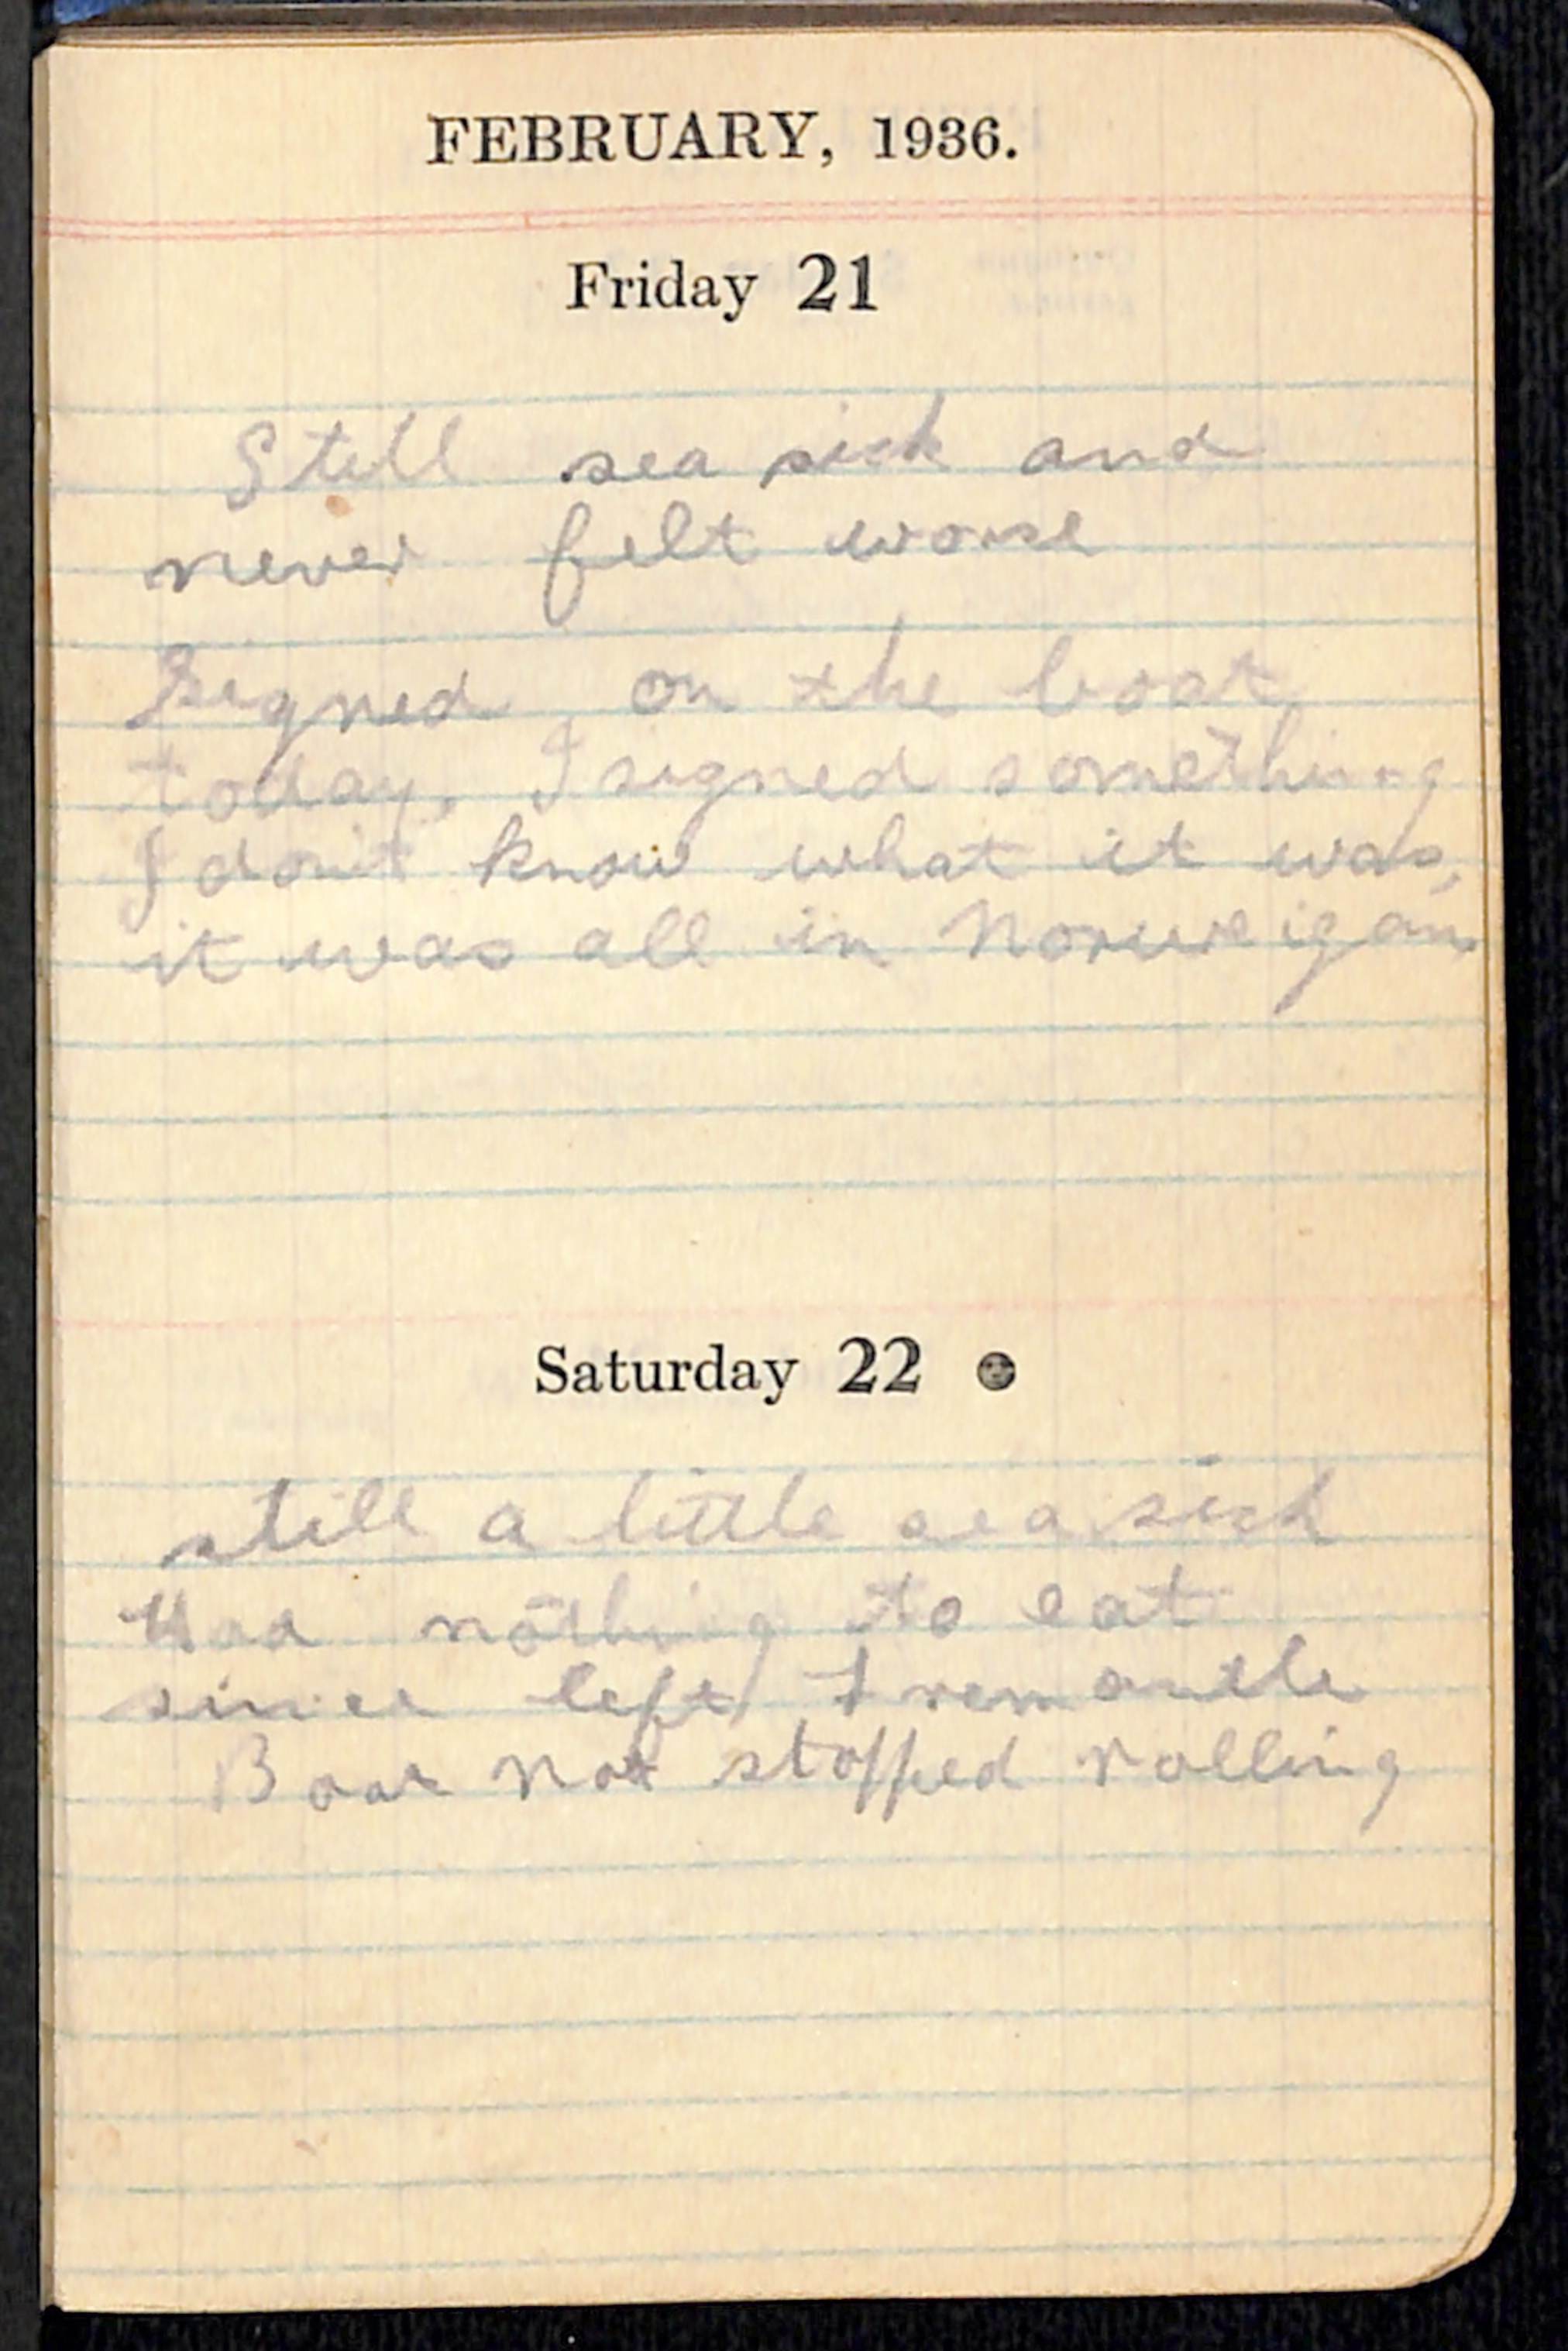 FEBRUARY, 1936.
Friday 21
Still sea sick and
never felt worse
Signed on the boat
today, I signed something
I don't know what it was,
it was all in Norweigan
Saturday 22
still a little sea sick
Had nothing to eat
since left Fremantle
Boat not stopped rolling